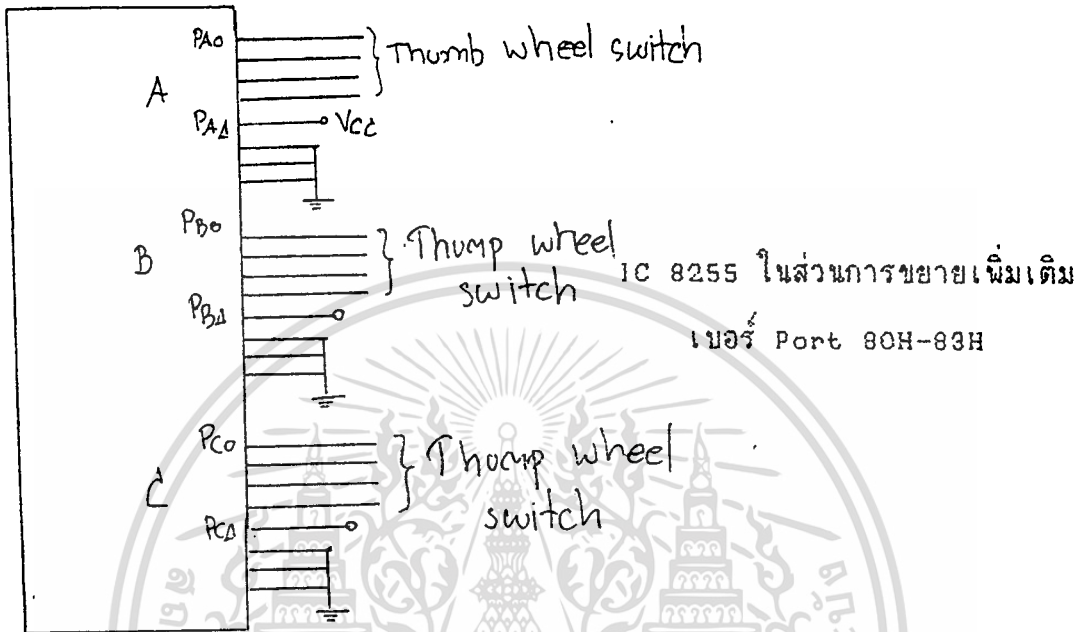 PA0
Thumb wheel switch
A
PA4
Vcc
PB0
B
Thump wheel
switch
PB4
IC 8255 ในส่วนการขยายเพิ่มเติม
เบอร์ Port 80H-83H
PC0
C
Thump wheel
switch
PC4